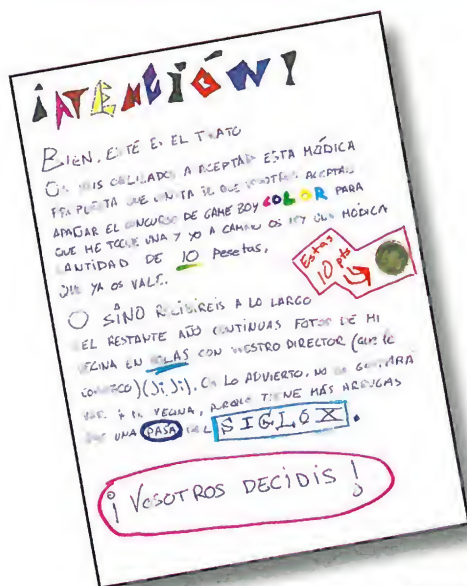 ¡ATENCIÓN!
BIEN, ESTE ES EL TRATO
OS VEIS OBLIGADOS A ACEPTAR ESTA MÓDICA
PROPUESTA QUE CONSTA DE QUE VOSOTROS ACEPTAIS
EL CONCURSO DE GAME BOY COLOR PARA
QUE ME TOQUE UNA Y YO A CAMBIO OS DOY UNA MÓDICA
CANTIDAD DE 10 Pesetas,
QUE YA OS VALE.
Estas
10 pts
O SINO RECIBIREIS A LO LARGO
EL RESTANTE AÑO CONTINUAS FOTOS DE MI
VECINA EN BOLAS CON VUESTRO DIRECTOR (que le
conozco)(Ji, Ji). OS LO ADVIERTO, NO OS GUSTARÁ
VER A MI VECINA, PORQUE TIENE MÁS ARRUGAS
QUE UNA PASA DEL SIGLO X.
¡VOSOTROS DECIDIS!